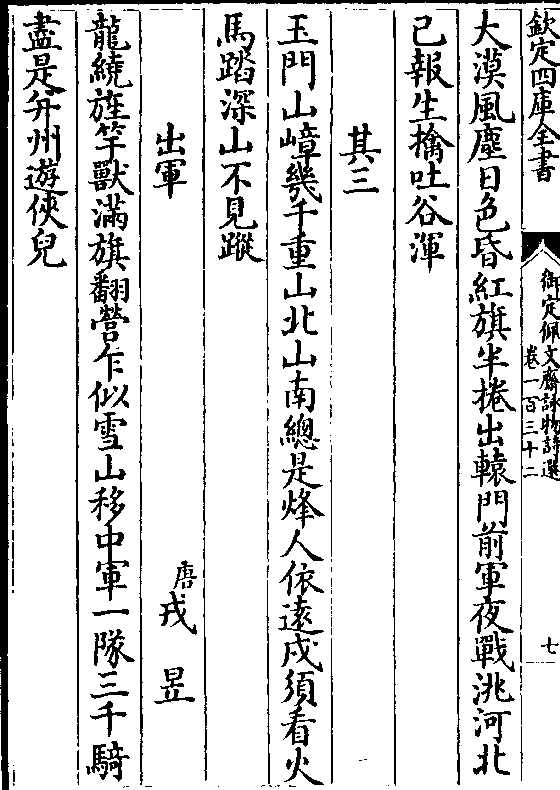 欽定四庫全書
御定佩文齋詠物詩選
卷一百三十二
七
大漠風塵日色昏紅旗半捲出轅門前軍夜戰洮河北
已報生擒吐谷渾
其三
玉門山嶂幾千重山北山南總是烽人依遠戍須看火
馬踏深山不見蹤
出軍
唐戎昱
龍繞旌竿獸滿旗翻營乍似雪山移中軍一隊三千騎
盡是并州遊俠兒